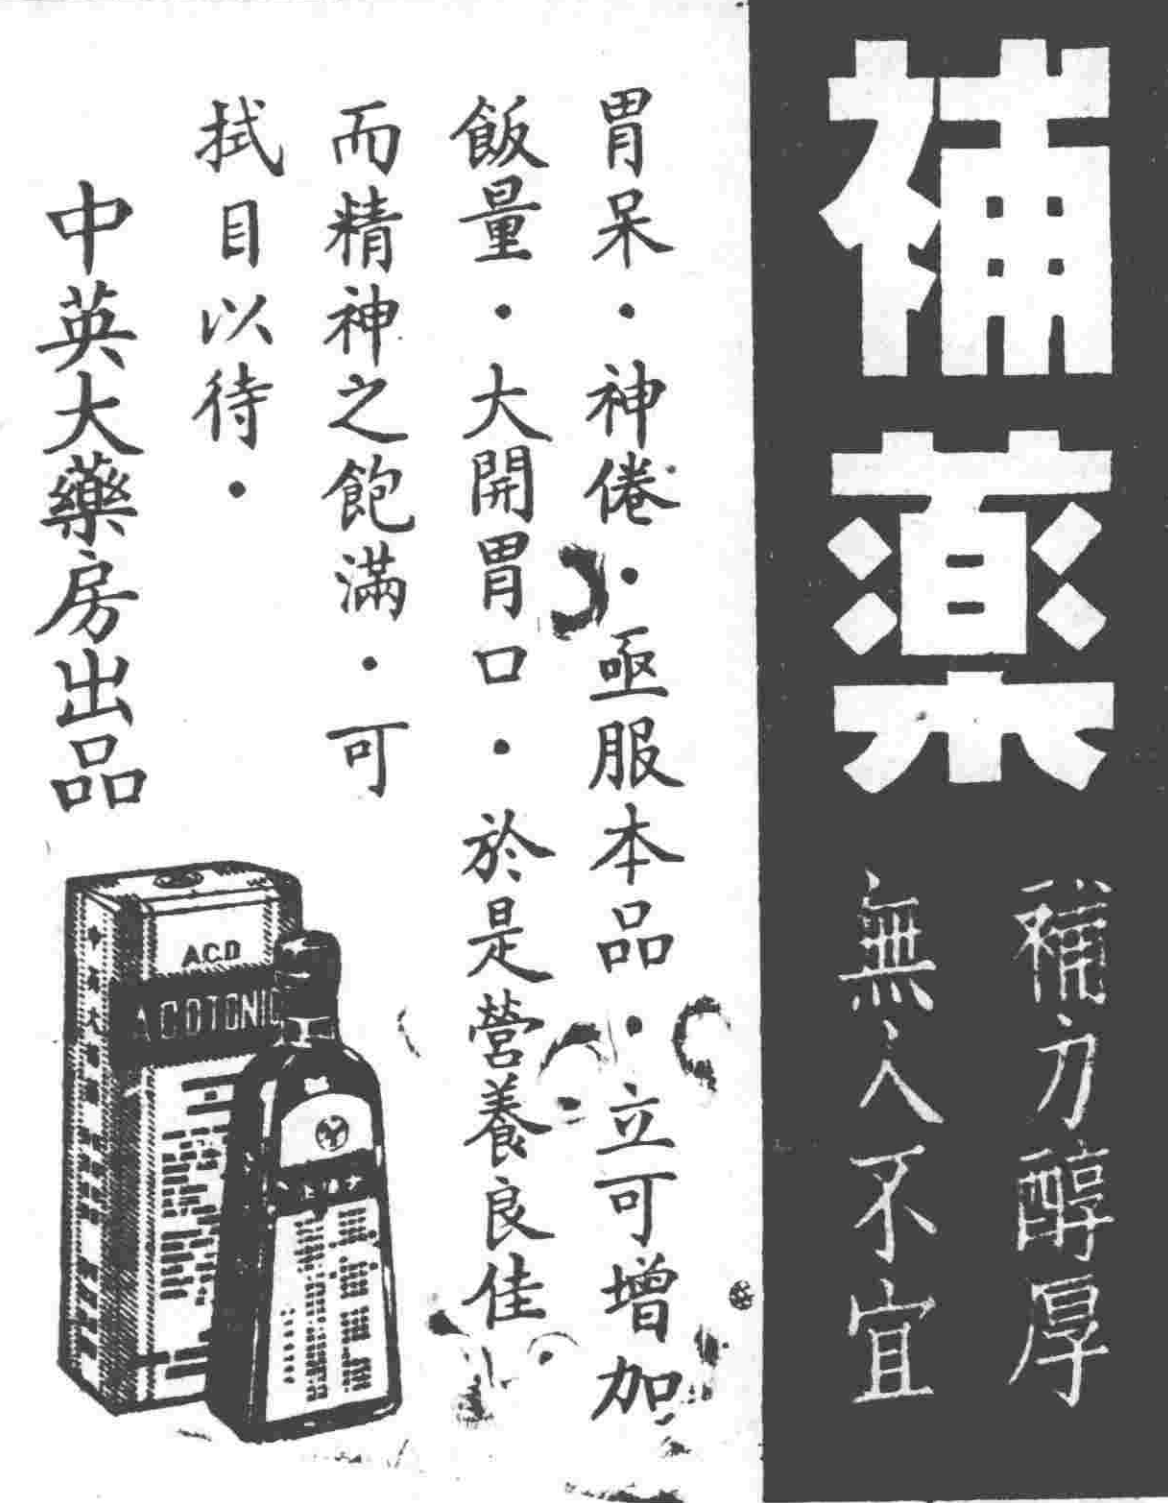 補藥
補方醇厚
無人不宜
胃呆·神倦·亟服本品·立可增加
飯量·大開胃口·於是營養良佳·
而精神之飽滿·可
拭目以待·
中英大藥房出品
A.C.D
ACOTONIC